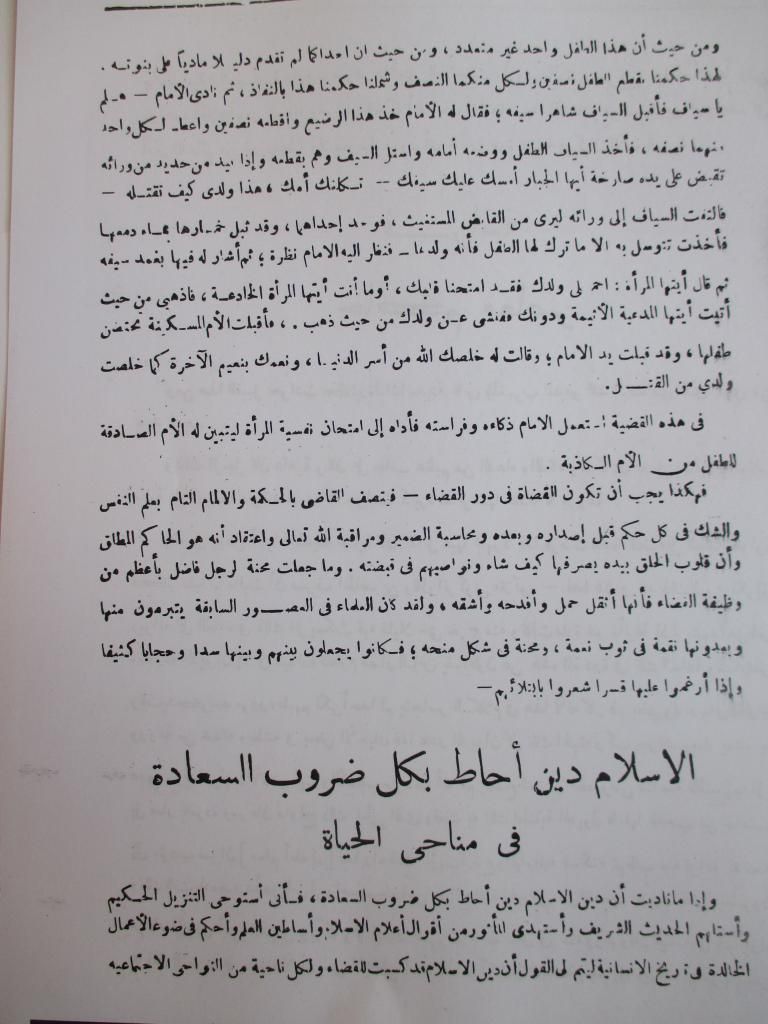 ومن حيث أن هذا الطفل واحد غير متعدد ، ومن حيث ان احداكما لم تقدم دليلا ماديا على بنوته .
لهذا حكمنا بقطع الطفل نصفين ولكل منكما النصف وشملنا حكمنا هذا بالنفاذ ، ثم نادى الأمام — هلم
يا سياف فأقبل السياف شاهرا سيفه ؛ فقال له الامام خذ هذا الرضيع واقطعه نصفين واعط لكل واحد
منهما نصفه ، فأخذ السياف الطفل ووضعه أمامه واستل السيف وهم بقطعه وإذا بيد من حديد من ورائه
تقبض على يده صارخة أيها الجبار أمسك عليك سيفك -- ثكلتك أمك ، هذا ولدى كيف تقتله —
فالتفت السياف إلى ورائه ليرى من القابض المستغيث ، فوجد إحداهما ، وقد تبل خمارها بماء دمعها
فأخذت تتوسل به الا ما ترك لها الطفل فأنه ولدها ــ فنظر اليه الامام نظرة ؛ ثم أشار له فيها بغمد سيفه
ثم قال أيتها المرأة : احملى ولدك فقد امتحنا قلبك ، أوما أنت أيتها المرأة الخادعة ، فاذهبى من حيث
أتيت أيتها المدعية الأثيمة ودونك ففتشى عن ولدك من حيث ذهب . ، فأقبلت الأم المسكينة تحتضن
طفلها ، وقد قبلت يد الامام ؛ وقالت له خلصك الله من أسر الدنيا ، ونعمك بنعيم الآخرة كما خلصت
ولدي من القتــل .
فى هذه القضية استعمل الامام ذكاءه وفراسته فأداه إلى امتحان نفسية المرأة ليتبين له الأم الصادقة
للطفل من الأم الكاذبة .
فهكذا يجب أن تكون القضاة فى دور القضاء — فيتصف القاضى بالحكمة والالمام التام بعلم النفس
والشك فى كل حكم قبل إصداره وبعده ومحاسبة الضمير ومراقبة الله تعالى واعتقاد أنه هو الحاكم المطلق
وأن قلوب الخلق بيده يصرفها كيف شاء ونواصيهم فى قبضته . وما جعلت محنة لرجل فاضل بأعظم من
وظيفة القضاء فأنها أثقل حمل وأفدحه وأشقه ، ولقد كان العلماء فى العصور السابقة يتبرمون منها
ويعدونها نقمة فى ثوب نعمة ، ومحنة فى شكل منحه ؛ فكانوا يجعلون بينهم وبينها سدا وحجابا كثيفا
وإذا أرغموا عليها قسرا شعروا بابتلائهم —
الاسلام دين أحاط بكل ضروب السعادة
فى مناحى الحياة
وإذا ما ناديت أن دين الاسلام دين أحاط بكل ضروب السعادة ، فأنى أستوحى التنزيل الحكيم
وأستلهم الحديث الشريف وأستهدى المأثور من أقوال أعلام الاسلام وأساطين العلم وأحكم فى ضوء الأعمال
الخالدة فى تاريخ الانسانية ليتم لى القول أن دين الاسلام قد كسبت للقضاء ولكل ناحية من النواحى الاجتماعيه